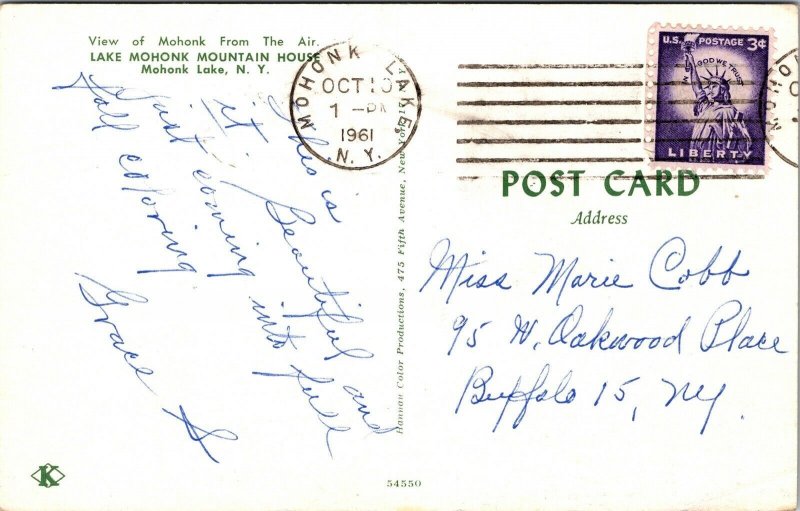 View of Mohonk From The Air.
LAKE MOHONK MOUNTAIN HOUSE
Mohonk Lake, N. Y.
MOHONK LAKE,
OCT 10
1 - PM
1961
N. Y.
U.S. POSTAGE 3¢
IN GOD WE TRUST
LIBERTY
POST CARD
Address
This is
Beautiful and
it is
just coming into full
fall coloring
Grace
Miss Marie Cobb
95 W. Oakwood Place
Buffalo 15, NY.
Hannau Color Productions, 475 Fifth Avenue, New York
K
54550